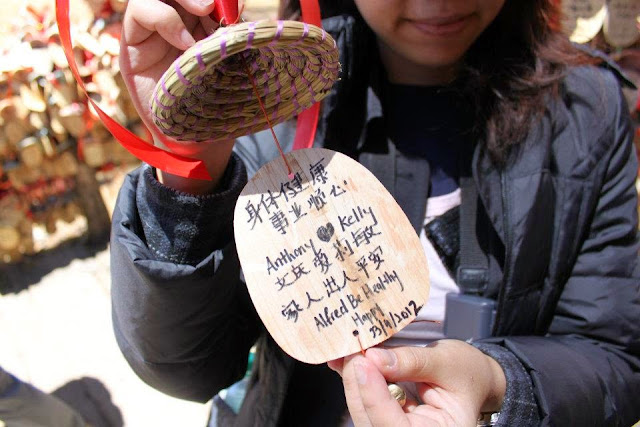 身体健康
事业顺心
Anthony ♥ Kelly
文庆 爱 利敏
家人出入平安
Alfred Be Healthy
Happy
23/9/2012